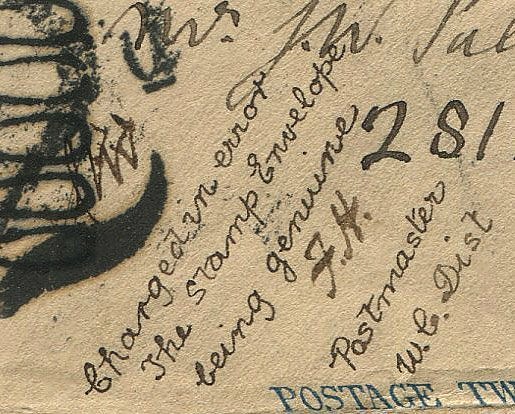 Mrs. J. W.
281
Charged in error
The stamp Envelope
being genuine
J.H.
Postmaster
W.C. Dist
POSTAGE TW